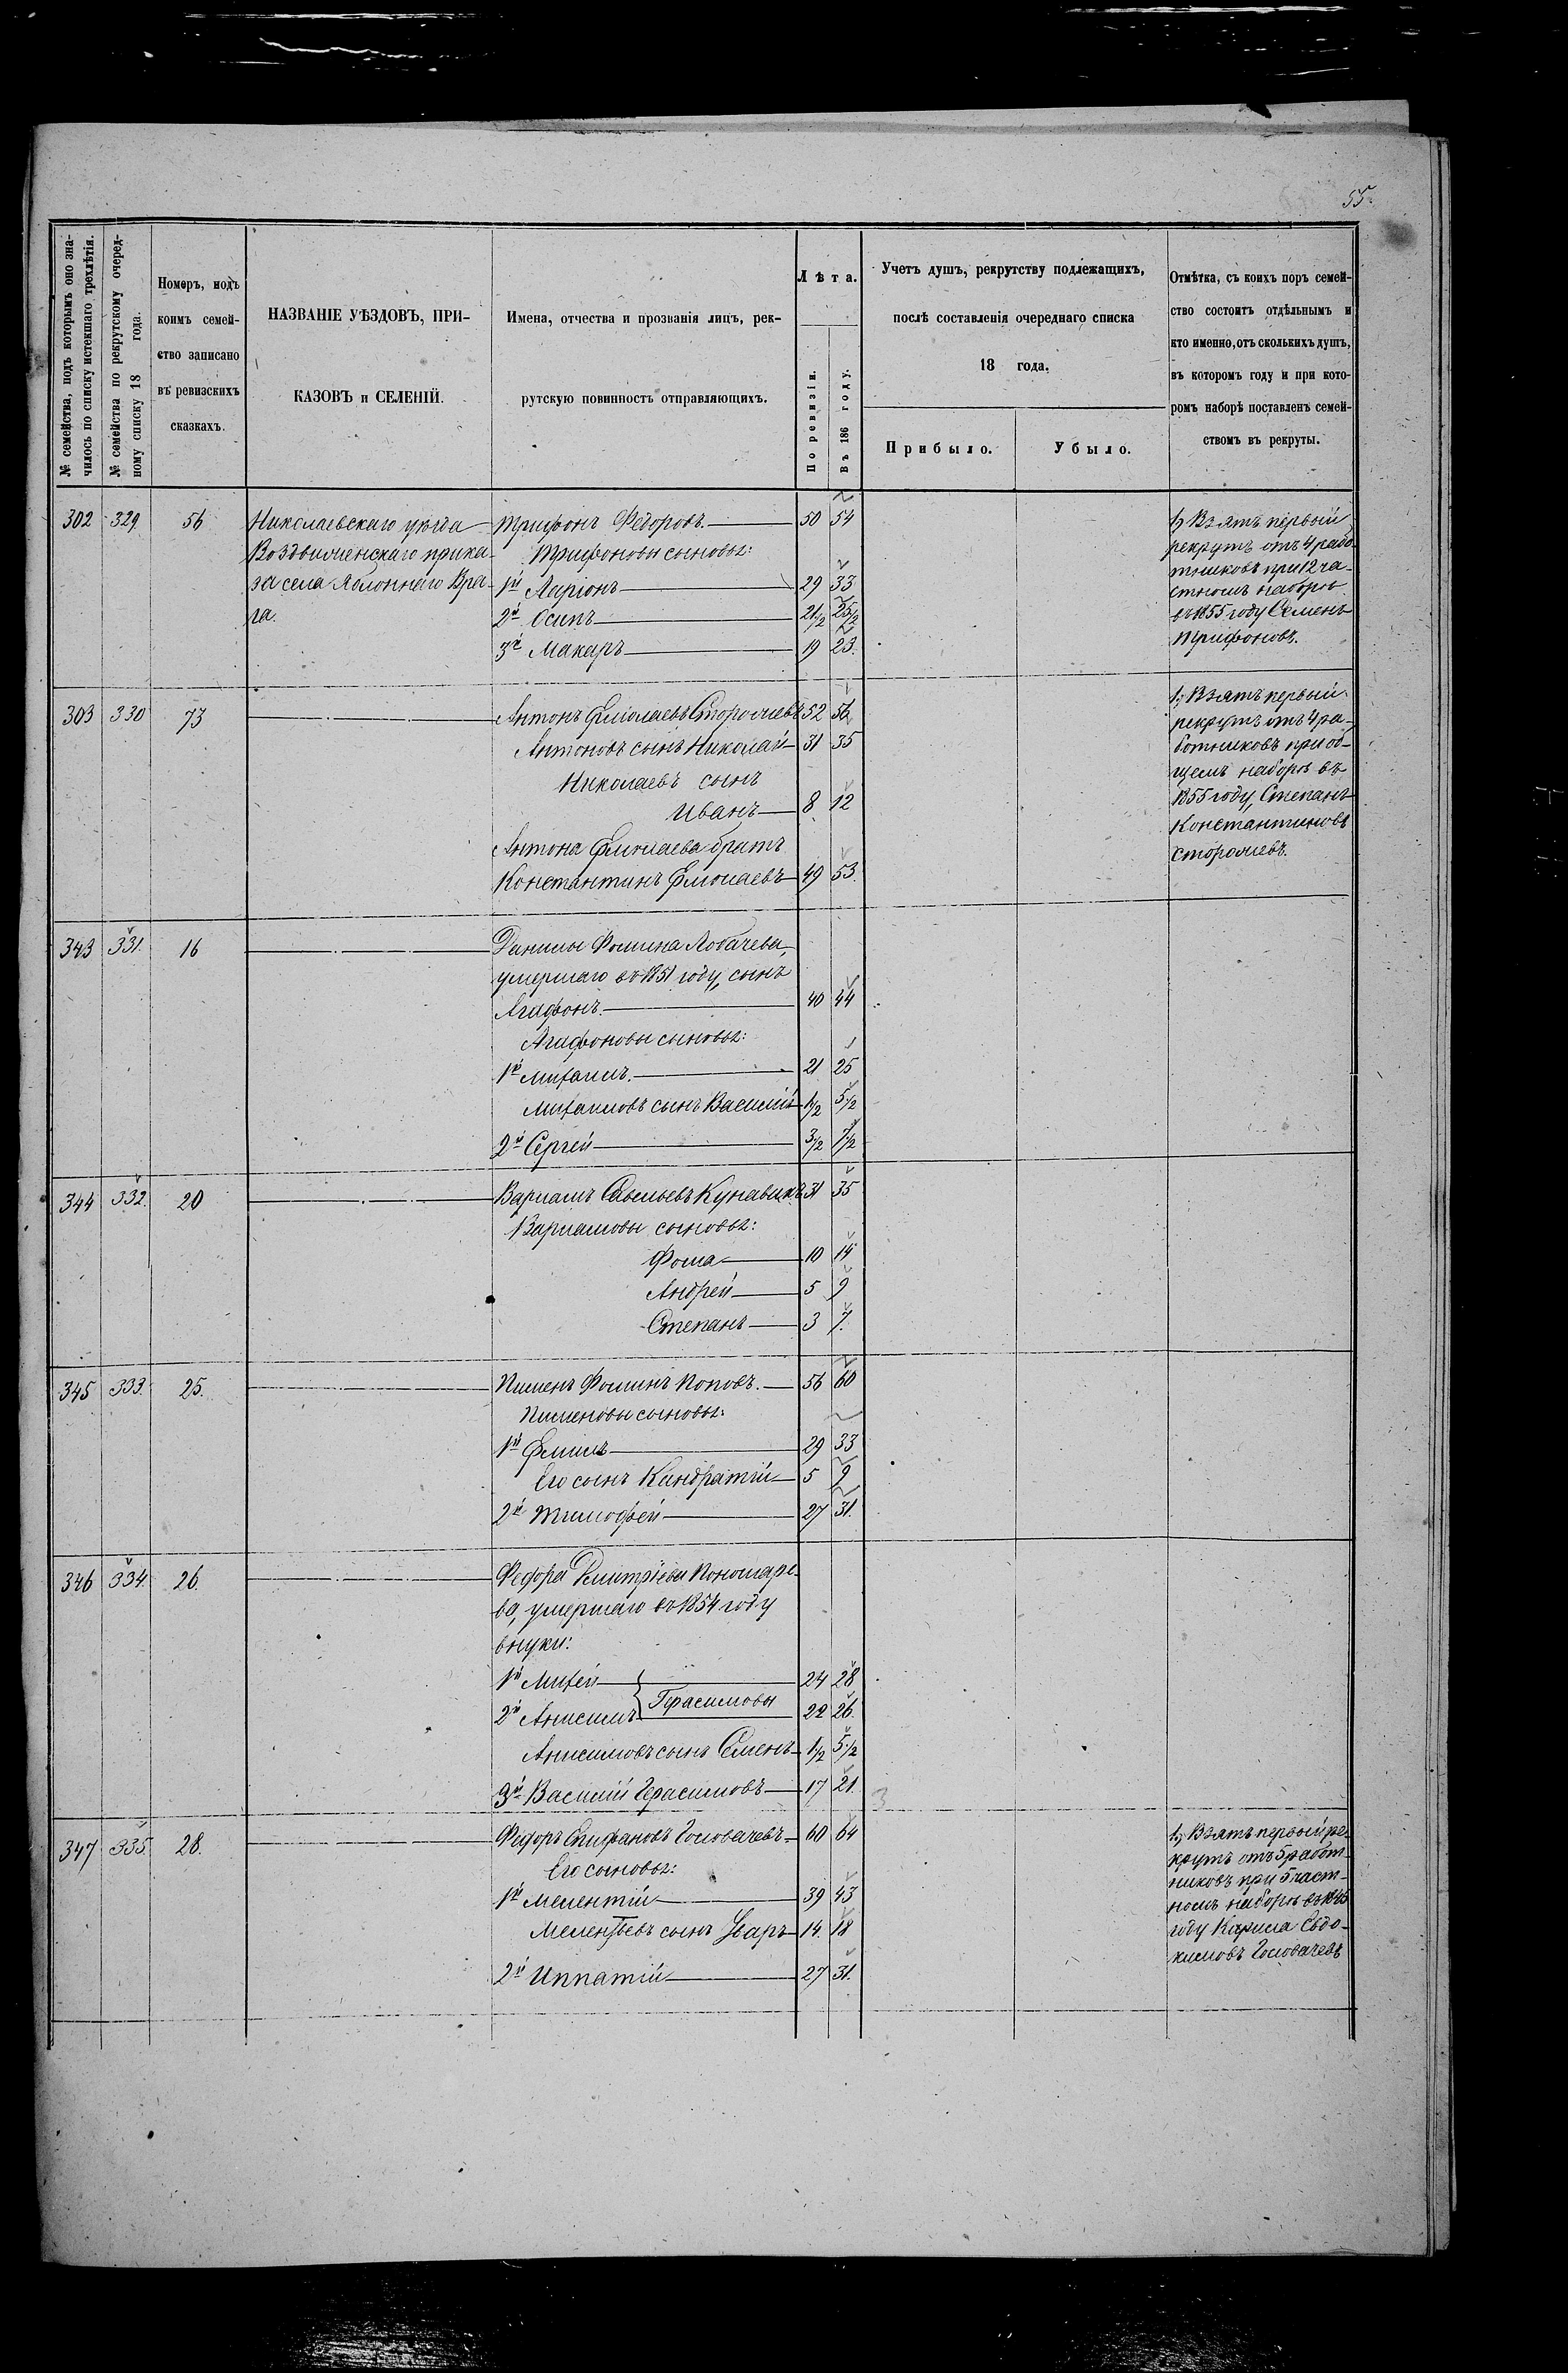 55.
№ семейства, подъ которымъ оно зна-
чилось по списку истекшаго трехлѣтія.
№ семейства по рекрутскому очеред-
ному списку 18 года.
Номеръ, подъ
коимъ семей-
ство записано
въ ревизскихъ
сказкахъ.
НАЗВАНІЕ УѢЗДОВЪ, ПРИ-
КАЗОВЪ и СЕЛЕНІЙ.
Имена, отчества и прозванія лицъ, рек-
рутскую повинность отправляющихъ.
Лѣта.
По ревизіи.
Въ 186 году.
Учетъ душъ, рекрутству подлежащихъ,
послѣ составленія очереднаго списка
18 года.
Прибыло.
Убыло.
Отмѣтка, съ коихъ поръ семей-
ство состоитъ отдѣльнымъ и
кто именно, отъ сколькихъ душъ,
въ которомъ году и при кото-
ромъ наборѣ поставленъ семей-
ствомъ въ рекруты.
302 329 56 Николаевскаго уѣзда Трифонъ Ѳедоровъ. 50 54
Воздвиженскаго прика- Трифоновы сыновья:
за села Яблоннаго Вра- 1й Ларіонъ 29 33
га. 2й Осипъ 21½ 25½
3й Макаръ 19 23.
1) Взятъ первый
рекрутъ отъ 4 рабо-
тниковъ при 12 ча-
стномъ наборѣ
въ 1855 году Семенъ
Трифоновъ.
303 330 73 Антонъ Ермолаевъ Сторожевъ 52 56
Антоновъ сынъ Николай 31 35
Николаевъ сынъ
Иванъ 8 12
Антона Ермолаева братъ
Константинъ Ермолаевъ 49 53.
1) Взятъ первый
рекрутъ отъ 4 ра-
ботниковъ при об-
щемъ наборѣ въ
1855 году, Степанъ
Константиновъ
Сторожевъ.
343 331. 16 Данилы Фомина Лобачева,
умершаго въ 1851 году, сынъ
Агафонъ. 40 44
Агафоновы сыновья:
1й Михаилъ. 21 25
Михаиловъ сынъ Василій 1½ 5½
2й Сергей 3½ 7½
344 332. 20 Варламъ Савельевъ Кунавинъ 31 35
Варламовы сыновья:
Фома 10 14
Андрей 5 9
Степанъ 3 7.
345 333. 25. Пименъ Фоминъ Поповъ. 56 60
Пименовы сыновья:
1й Емилъ 29 33
Его сынъ Киндратій 5 9
2й Тимофей 27 31.
346 334. 26. Федора Дмитріева Пономаре-
ва, умершаго въ 1854 году
внуки:
1й Михей 24 28
Герасимовы
2й Анисимъ 22 26.
Анисимовъ сынъ Семенъ 1½ 5½
3й Василий Герасимовъ 17 21. 3
347 335. 28. Федоръ Епифановъ Головачевъ 60 64
Его сыновья:
1й Мелентій 39 43
Мелентьевъ сынъ Уваръ 14. 18
2й Иппатій 27 31.
1) Взятъ первый ре-
крутъ отъ 5 работ-
никовъ при 5 част-
номъ наборѣ въ 1845
году Карила Евдо-
кимовъ Головачевъ